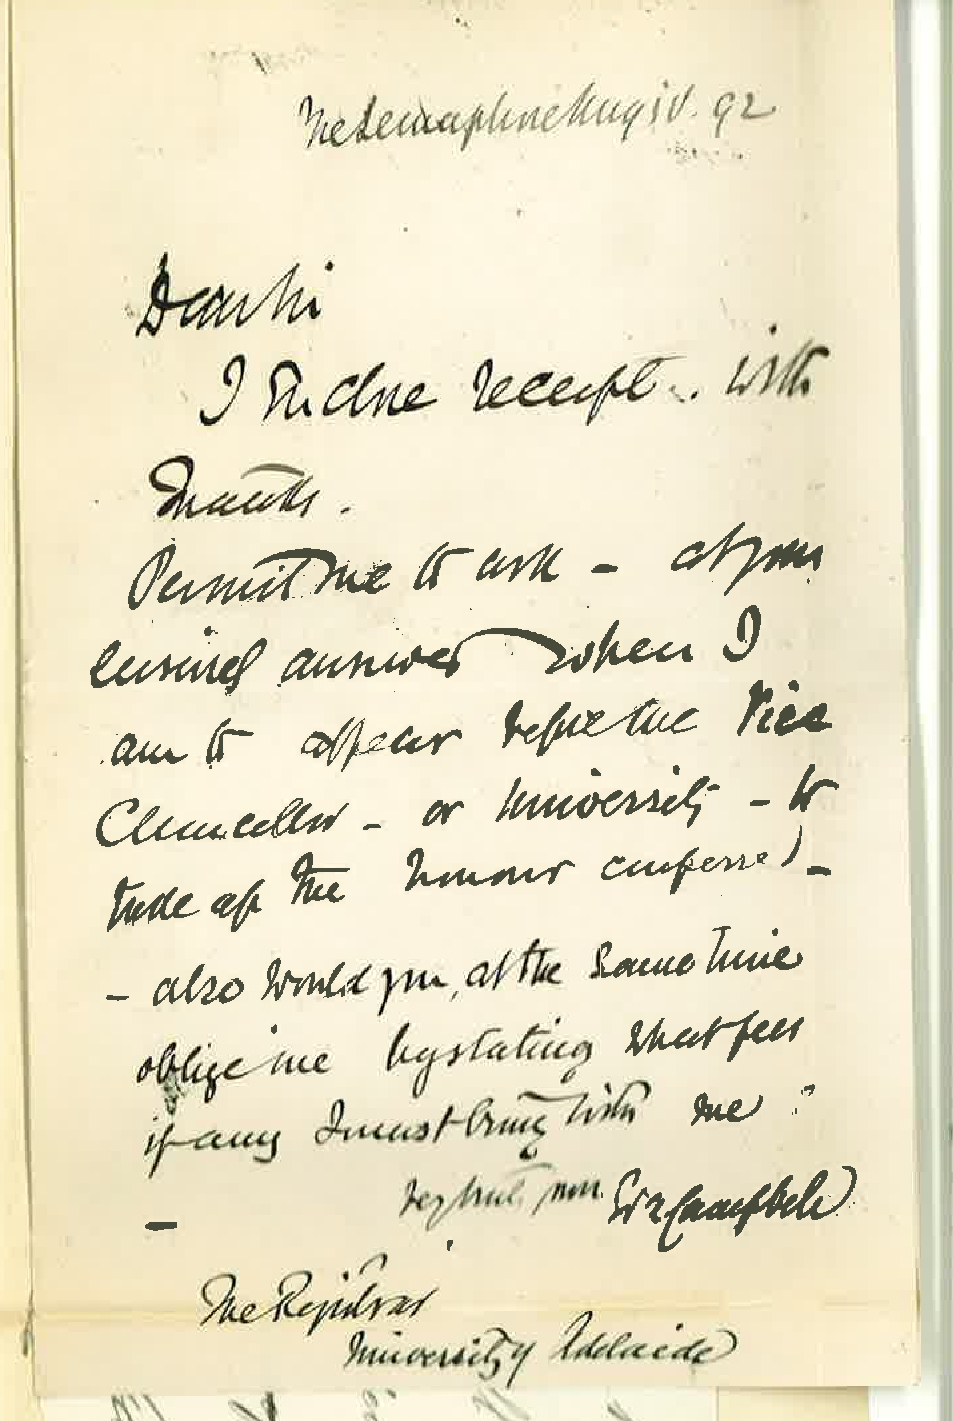 The Semaphore Aug 92
Dear Sir
I Enclose receipt . with
Thanks .
Permit me to ask - at your
leisured answer when I
am to appear before the Vice
Chancellor - or University - to
take up the honour conferred -
- also would you, at the same time
oblige me by stating what fees
if any I must bring with me ?
Campbell
-
The Registrar
University Adelaide